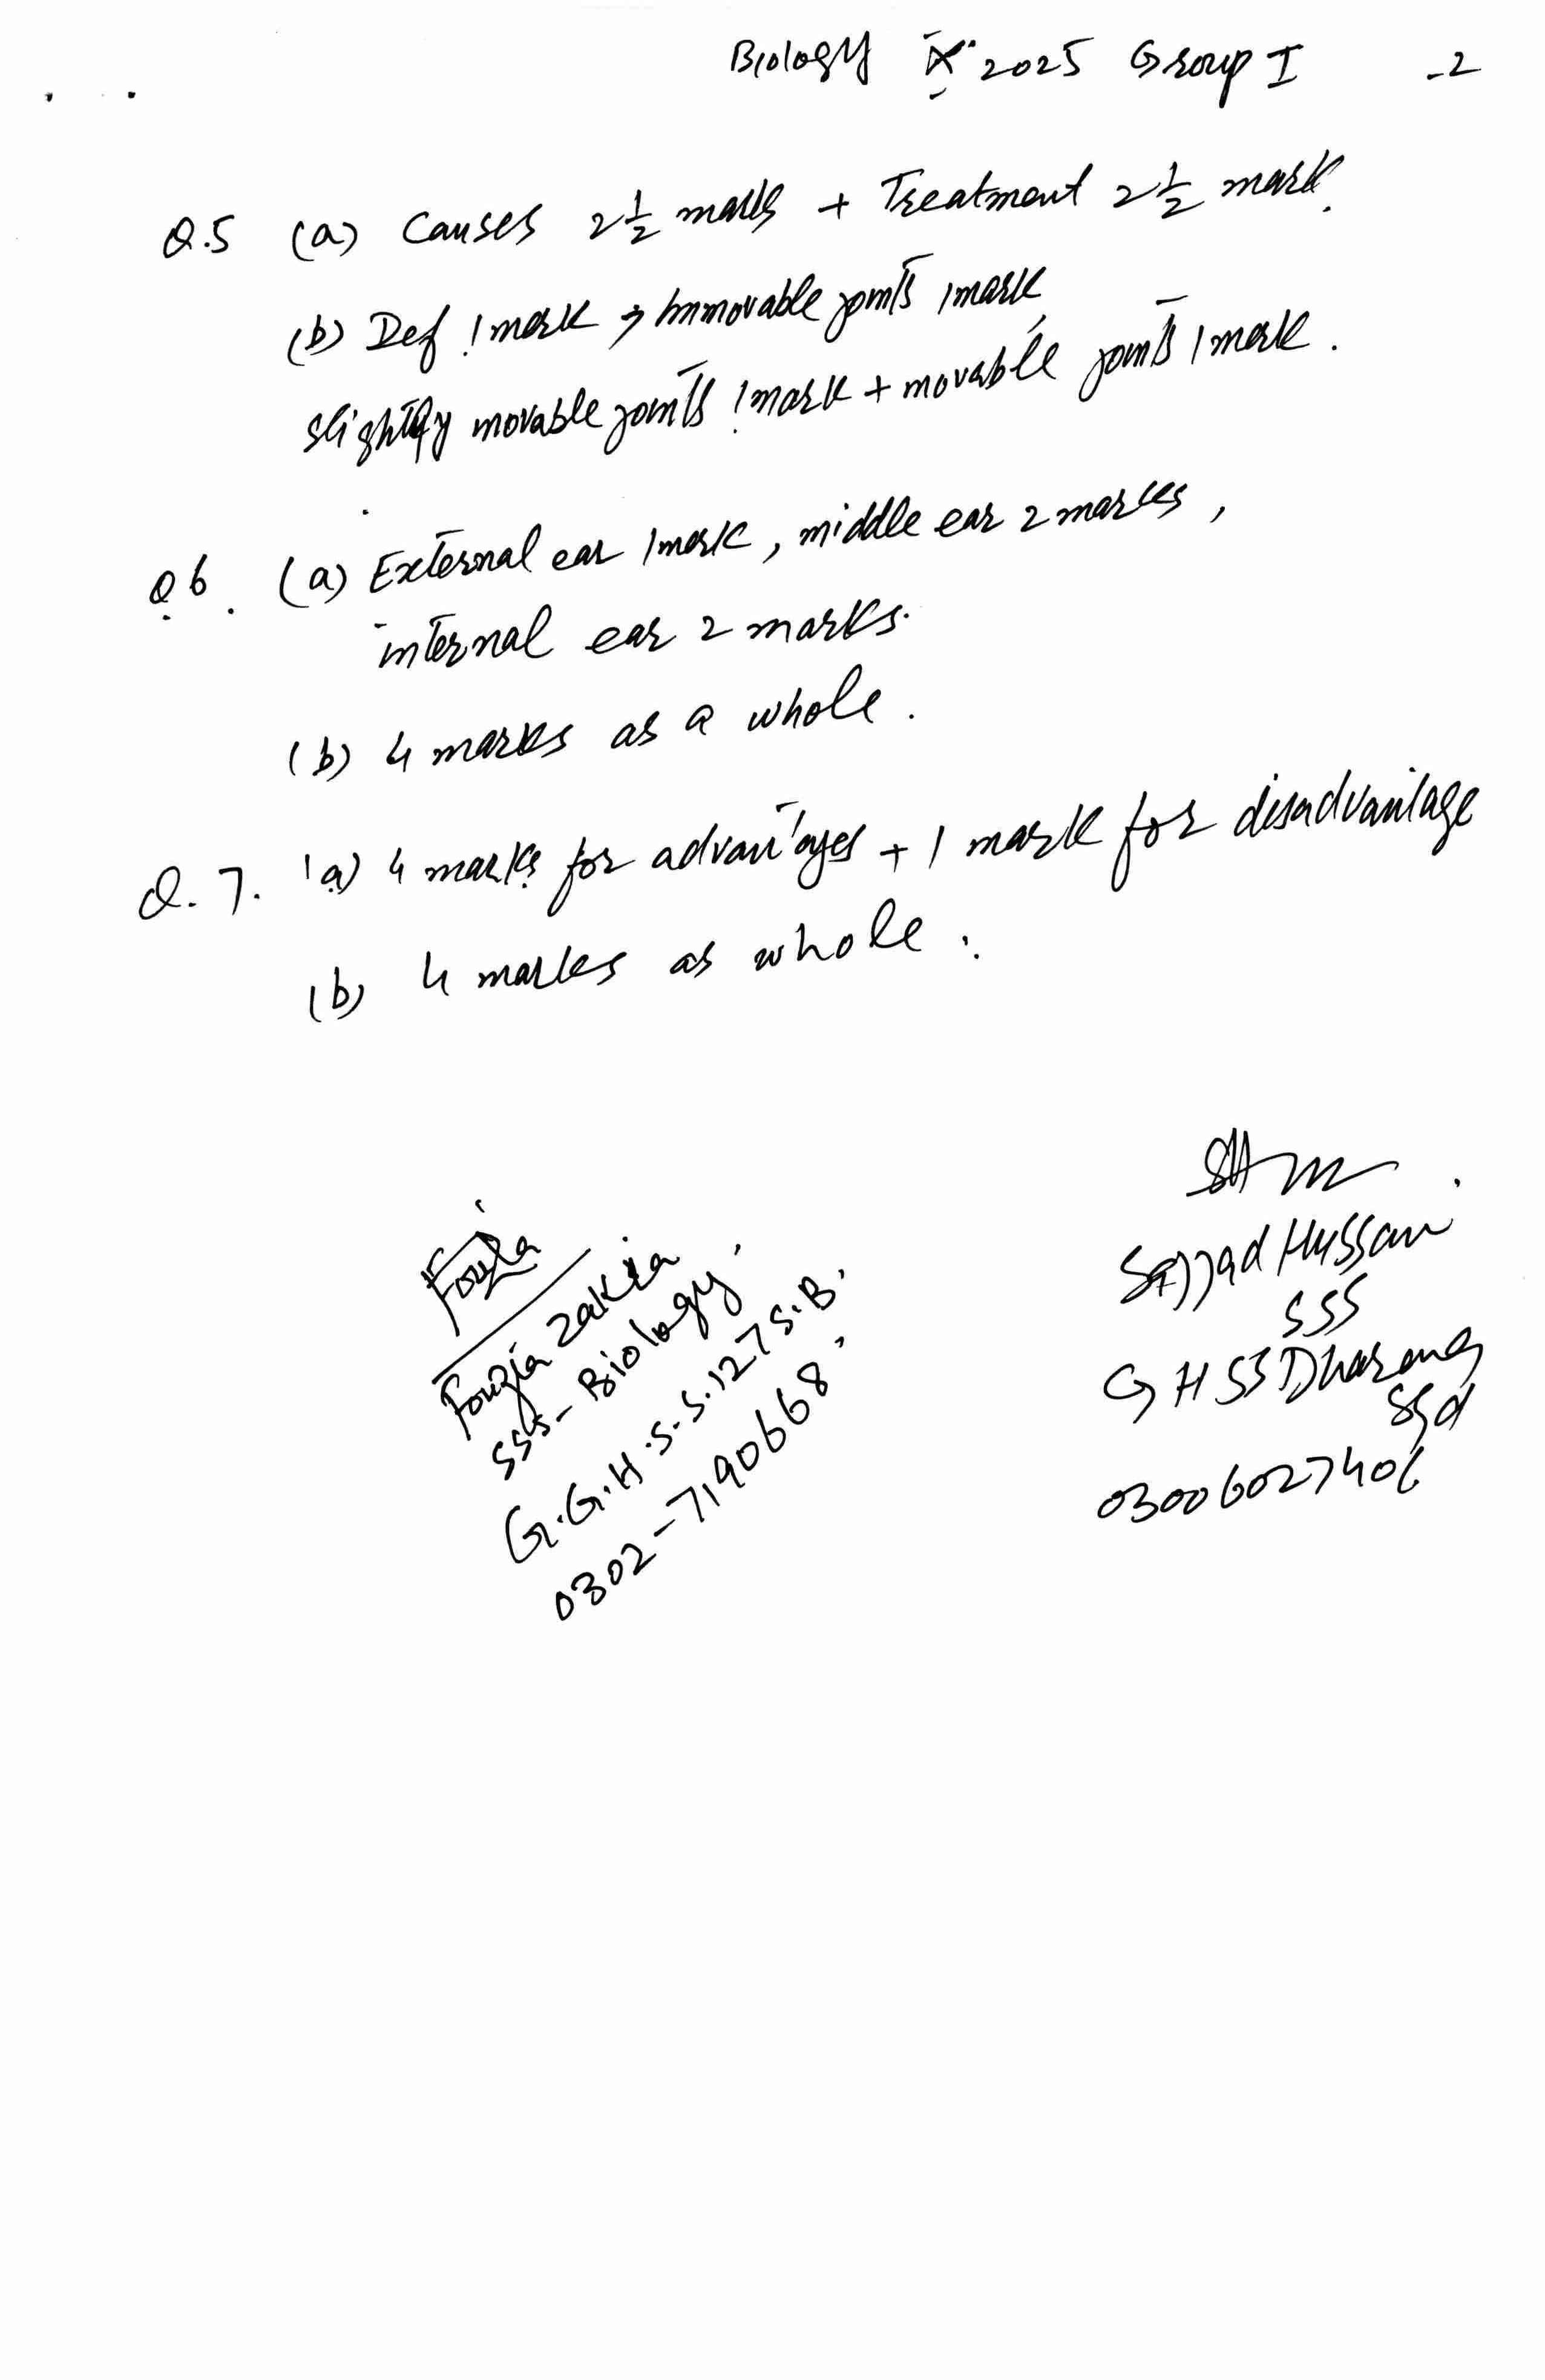 Biology X 2025 Group I -2
Q.5 (a) Causes 2 1/2 marks + Treatment 2 1/2 mark.
(b) Def 1 mark, Immovable joints 1 mark,
slightly movable joints 1 mark + movable joints 1 mark.
Q6. (a) External ear 1 mark, middle ear 2 marks,
internal ear 2 marks.
(b) 4 marks as a whole.
Q.7. (a) 4 marks for advantages + 1 mark for disadvantage
(b) 4 marks as whole.
Fouzia
Fouzia Zakia
SSS-Biology.
G.G.H.S.S.127 S.B.
0302-7190668.
Sajjad Hussain
SSS
GHSS Dharema
SGd
03006027406